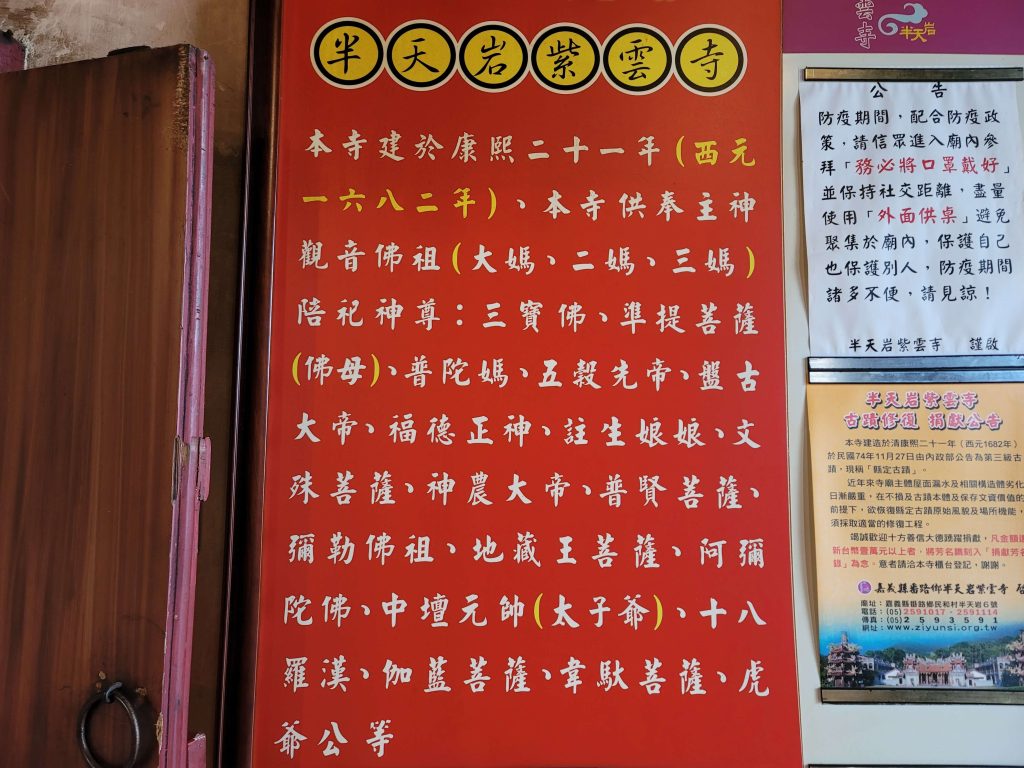 半天岩紫雲寺
本寺建於康熙二十一年(西元
一六八二年)、本寺供奉主神
觀音佛祖(大媽、二媽、三媽)
陪祀神尊:三寶佛、準提菩薩
(佛母)、普陀媽、五穀先帝、盤古
大帝、福德正神、註生娘娘、文
殊菩薩、神農大帝、普賢菩薩、
彌勒佛祖、地藏王菩薩、阿彌
陀佛、中壇元帥(太子爺)、十八
羅漢、伽藍菩薩、韋馱菩薩、虎
爺公等
雲寺
半天岩
公 告
防疫期間,配合防疫政
策,請信眾進入廟內參
拜「務必將口罩戴好」
並保持社交距離,盡量
使用「外面供桌」避免
聚集於廟內,保護自己
也保護別人,防疫期間
諸多不便,請見諒!
半天岩紫雲寺 謹啟
半天岩紫雲寺
古蹟修復 捐獻公告
本寺建造於清康熙二十一年(西元1682年)
於民國74年11月27日由內政部公告為第三級古
蹟,現稱「縣定古蹟」。
近年來寺廟主體屋面漏水及相關構造體劣化
日漸嚴重,在不損及古蹟本體及保存文資價值的
前提下,欲恢復縣定古蹟原始風貌及場所機能,
須採取適當的修復工程。
竭誠歡迎十方善信大德踴躍捐獻,凡金額達
新台幣壹萬元以上者,將芳名鐫刻入「捐獻芳名
錄」為念。意者請洽本寺櫃台登記,謝謝。
嘉義縣番路鄉半天岩紫雲寺
廟址:嘉義縣番路鄉民和村半天岩6號
電話:(05)2591017・2591114
傳真:(05)2593591
網址:www.ziyunsi.org.tw